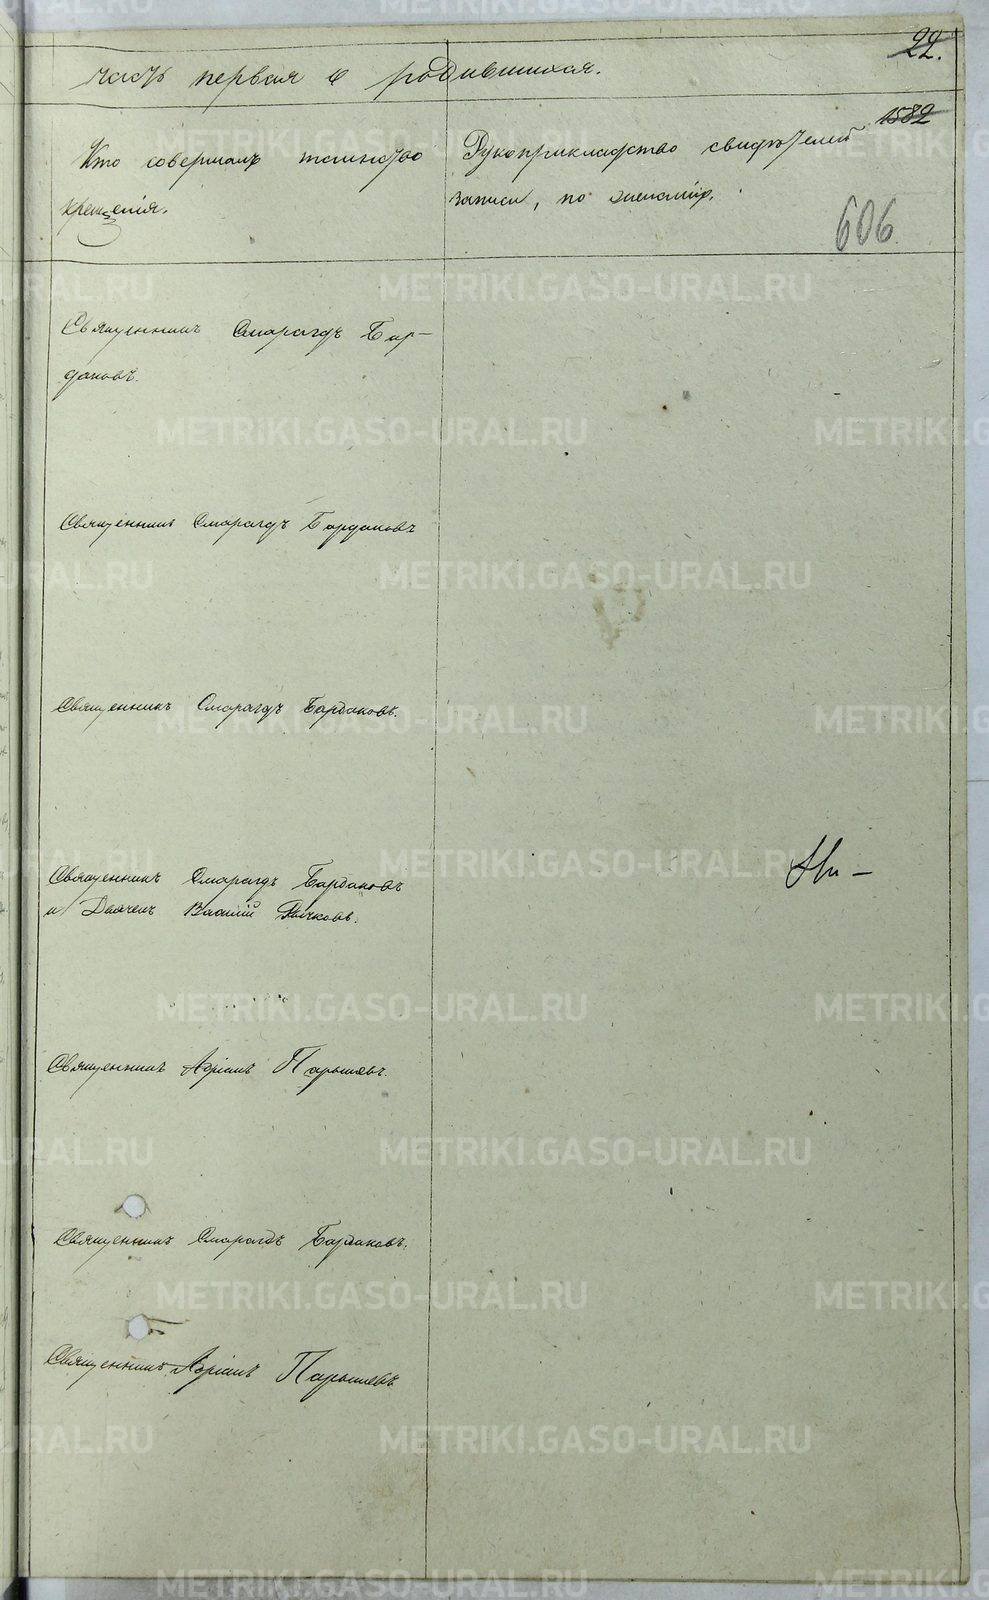 22.
часть первая о родившихся.
1582
Кто совершалъ таинство
крещенія.
Рукоприкладство свидѣтелей
записи, по желанію.
606
Священникъ Смарагдъ Бар-
даковъ.
Священникъ Смарагдъ Бардаковъ
Священникъ Смарагдъ Бардаковъ.
Священникъ Смарагдъ Бардаковъ
и Дьячекъ Василій Рычковъ.
Священникъ Адріанъ Парышевъ.
Священникъ Смарагдъ Бардаковъ.
Священникъ Адріанъ Парышевъ
METRIKI.GASO-URAL.RU